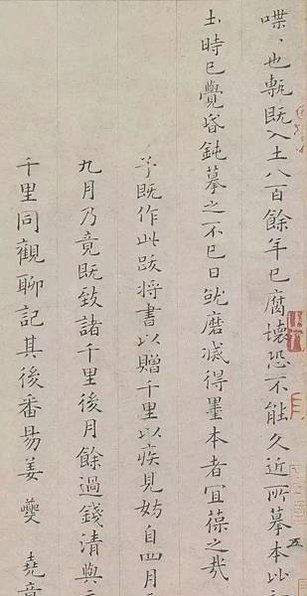 喋〻也甎既入土八百餘年已腐壞恐不能久近所摹本比
土時已覺昏鈍摹之不已日就磨滅得墨本者宜葆之哉
予既作此跋將書以贈千里以疾見妨自四月
九月乃竟既致諸千里後月餘過錢清與
千里同觀聊記其後番昜姜夔 堯章